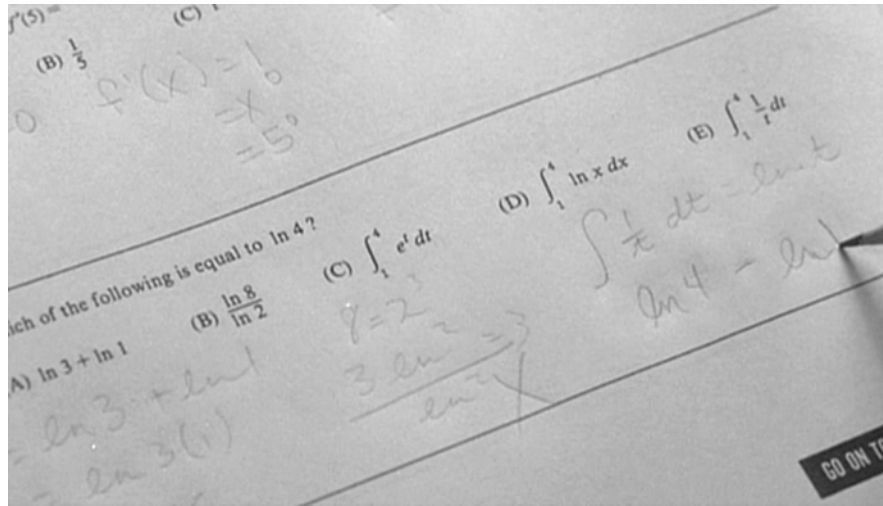 f'(5)=
(B) 1/5
(C)
f'(x) = 1
= x⁰
= 5⁰
0
ich of the following is equal to ln 4 ?
A) ln 3 + ln 1
(B) ln 8 / ln 2
(C) ∫₁⁴ eᵗ dt
(D) ∫₁⁴ ln x dx
(E) ∫₁⁴ 1/t dt
= ln 3 + ln 1
= ln 3(1)
8 = 2³
3 ln 2 / ln 2 = 3
∫ 1/t dt = ln t
ln 4 - ln 1
GO ON TO